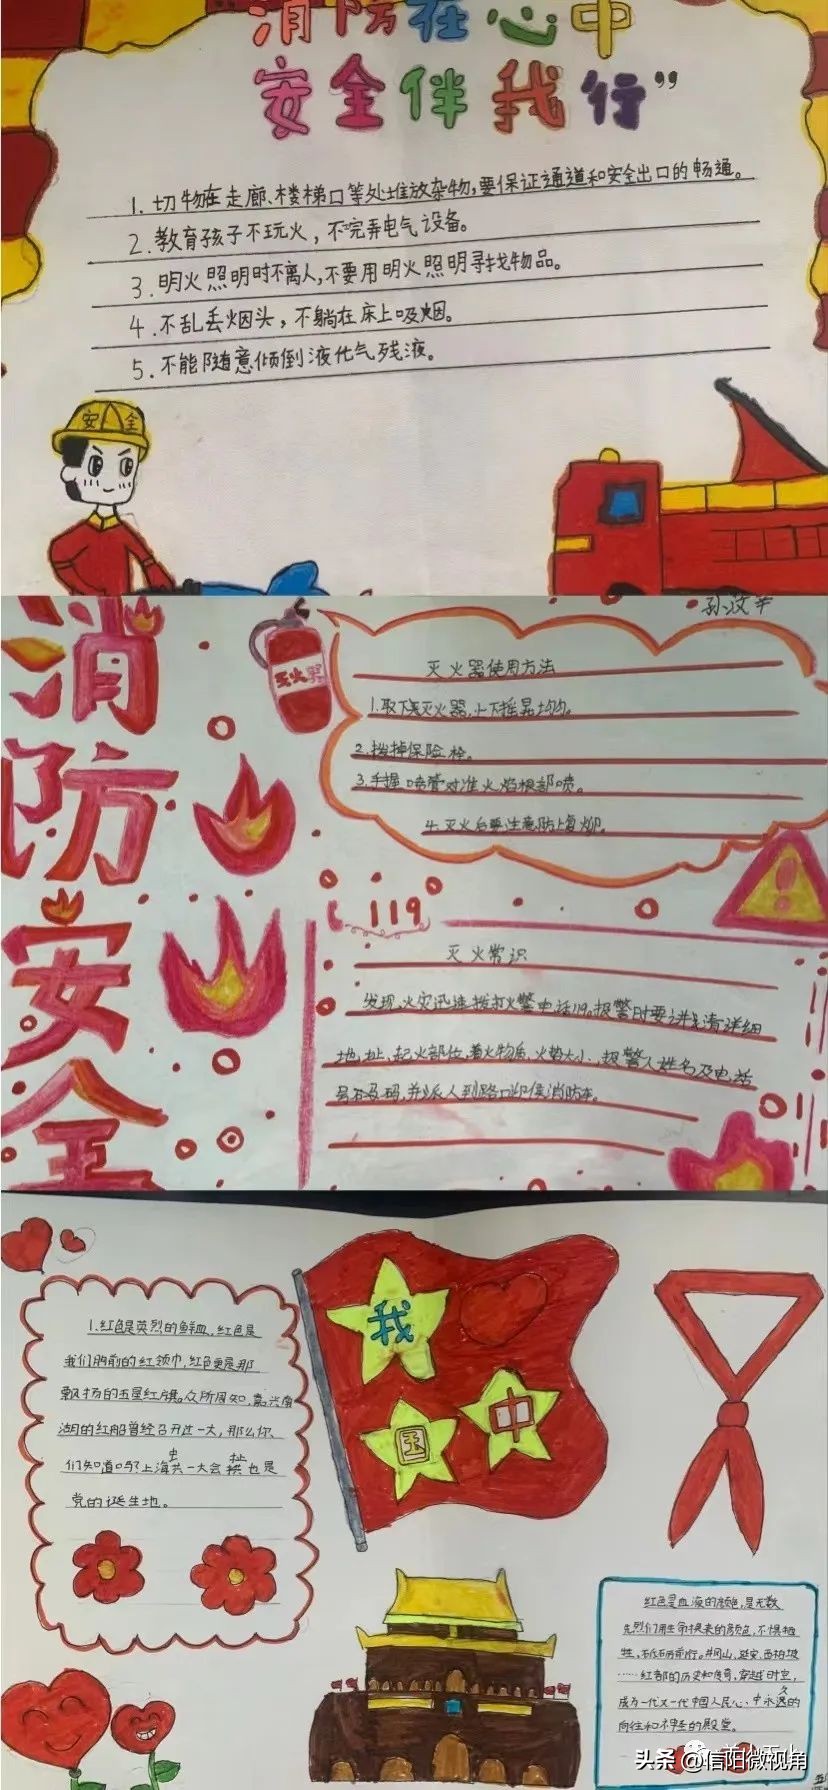 消防在心中
安全伴我行”
1.切物在走廊、楼梯口等处堆放杂物,要保证通道和安全出口的畅通。
2.教育孩子不玩火，不玩弄电气设备。
3.明火照明时不离人,不要用明火照明寻找物品。
4.不乱丢烟头，不躺在床上吸烟。
5.不能随意倾倒液化气残液。
安全
孙汶芊
消防安全
灭火器
灭火器使用方法
1.取下灭火器,上下摇晃均匀。
2.拨掉保险栓。
3.手握喷管对准火焰根部喷。
4.灭火后要注意防止复燃。
119
灭火常识
发现火灾迅速拨打火警电话119。报警时要讲清详细
地址、起火部位,着火物质,火势大小,报警人姓名及电话
号码,并派人到路口迎侯消防车。
1.红色是英烈的鲜血,红色是
我们胸前的红领巾,红色更是那
飘扬的五星红旗。众所周知,嘉兴南
湖的红船曾经召开过一大,那么你
们知道吗?上海共一大会址也是
党的诞生地。
我
中
国
红色是血液的颜色,是无数
先烈们用生命换来的颜色,不惧牺
牲,砥砺前行。井冈山、延安、西柏坡
……红都的历史和传奇,穿越时空,
成为一代又一代中国人民心中永久的
向往和神圣的殿堂。
头条 @信阳微视角